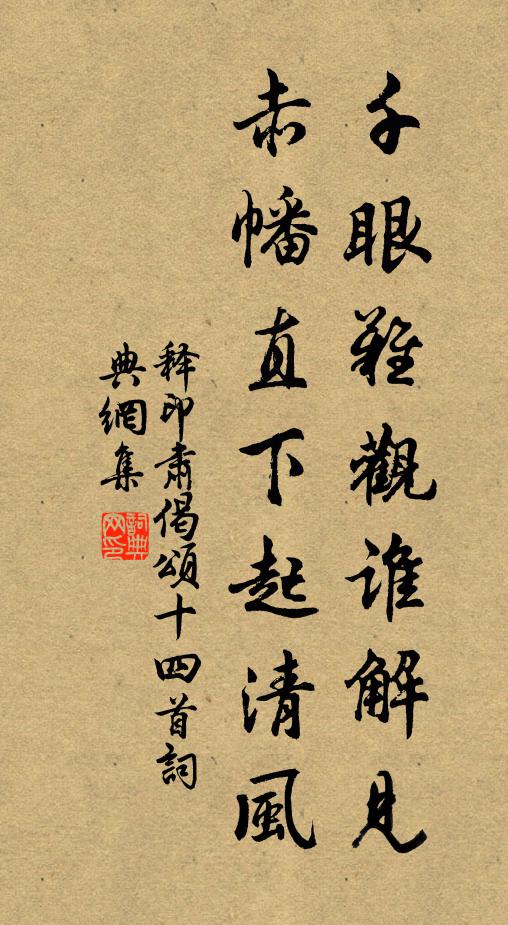 千眼難觀誰解見
赤幡直下起清風
释印肅偈頌十四首詞
典網集
詞典
网印